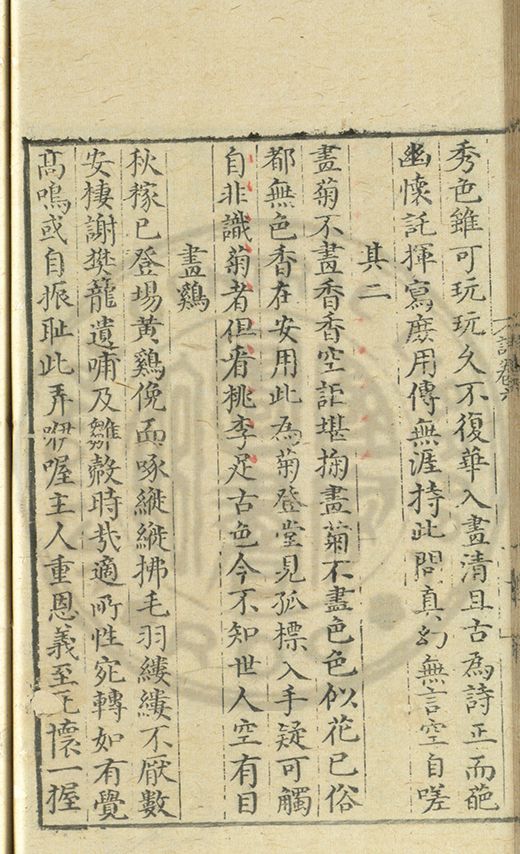 秀色雖可玩玩久不復華入畫清且古為詩正而葩
幽懷託揮寫庶用傳無涯持此問真幻無言空自嗟
其二
畫菊不畫香香空詎堪掬畫菊不畫色色似花已俗
都無色香在安用此為菊登堂見孤標入手疑可觸
自非識菊者俱看桃李足古色今不知世人空有目
畫鷄
秋稼已登場黃鷄俛而啄縰縰拂毛羽縷縷不厭數
安棲謝樊籠遺哺及雛鷇時哉適所性宛轉如有覺
高鳴或自振耻此弄咿喔主人重恩義至懷一握